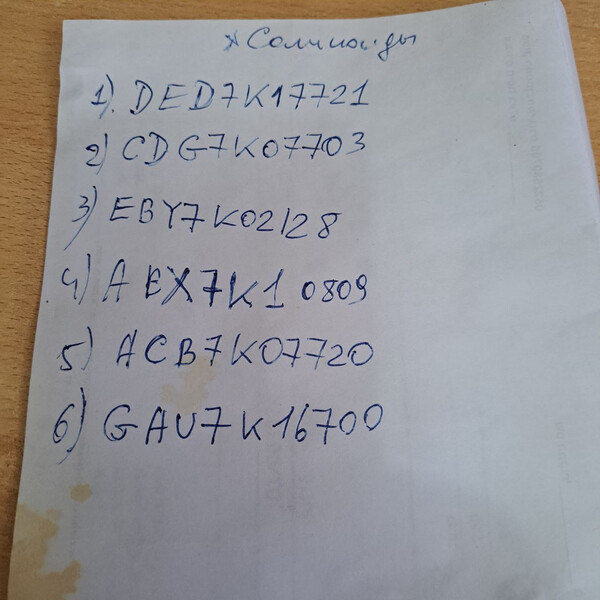 * Солиноиды
1) DED7K17721
2) CDG7K07703
3) EBY7K02128
4) AEX7K10809
5) ACB7K07720
6) GAU7K16700